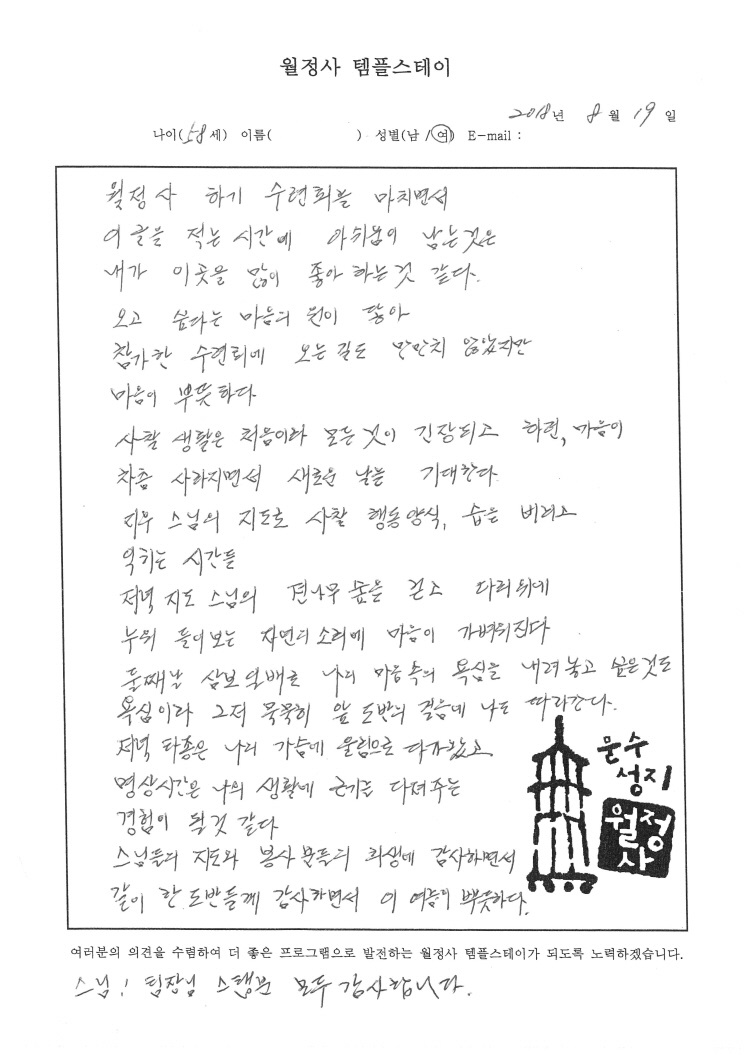 월정사 템플스테이
2018년 8월 19일
나이(58세) 이름( ) 성별(남 / 여) E-mail :
월정사 하기 수련회를 마치면서
이 글을 적는 시간에 아쉬움이 남는것은
내가 이곳을 많이 좋아 하는것 같다.
오고 싶다는 마음의 원이 닿아
참가한 수련회에 오는길도 만만치 않았지만
마음이 뿌듯하다
사찰 생활은 처음이라 모든 것이 긴장되고 하련, 마음이
차츰 사라지면서 새로운 날을 기대한다
지무 스님의 지도로 사찰 행동양식, 습을 버리고
익히는 시간들
저녁 지도 스님의 전나무 숲을 걷고 다리위에
누워 들어보는 자연의소리에 마음이 가벼워진다
둘째날 삼보일배로 나의 마음속의 욕심을 내려놓고 싶은것도
욕심이라 그저 묵묵히 앞 도반의 걸음에 나도 따라간다.
저녁 타종은 나의 가슴에 울림으로 다가왔고
명상시간은 나의 생활에 근기를 다져주는
경험이 될것 같다
스님들의 지도와 봉사 분들의 희생에 감사하면서
같이 한 도반들께 감사하면서 이 여름이 뿌듯하다.
문수
성지
월정
사
여러분의 의견을 수렴하여 더 좋은 프로그램으로 발전하는 월정사 템플스테이가 되도록 노력하겠습니다.
스님! 팀장님 스탭분 모두 감사합니다.